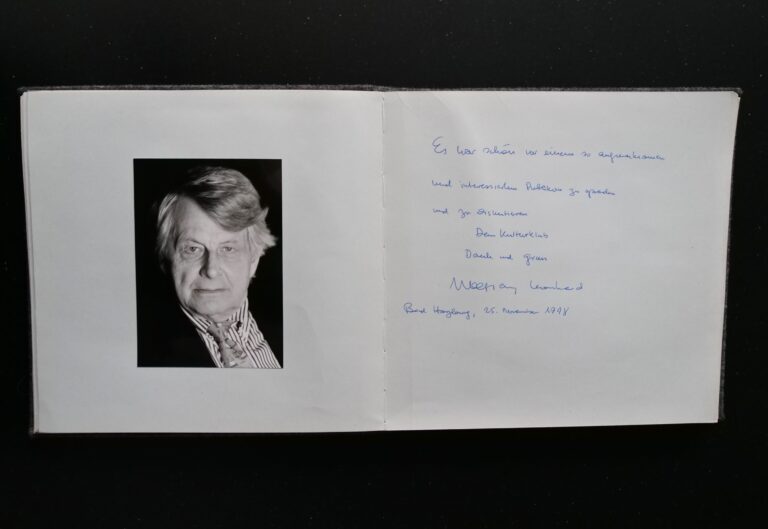 Es war schön vor einem so aufmerksamen
und interessierten Publikum zu sprechen
und zu diskutieren
Dem Kulturkreis
Dank und Gruss
Wolfgang Leonhard
Bad, 25. November 1998